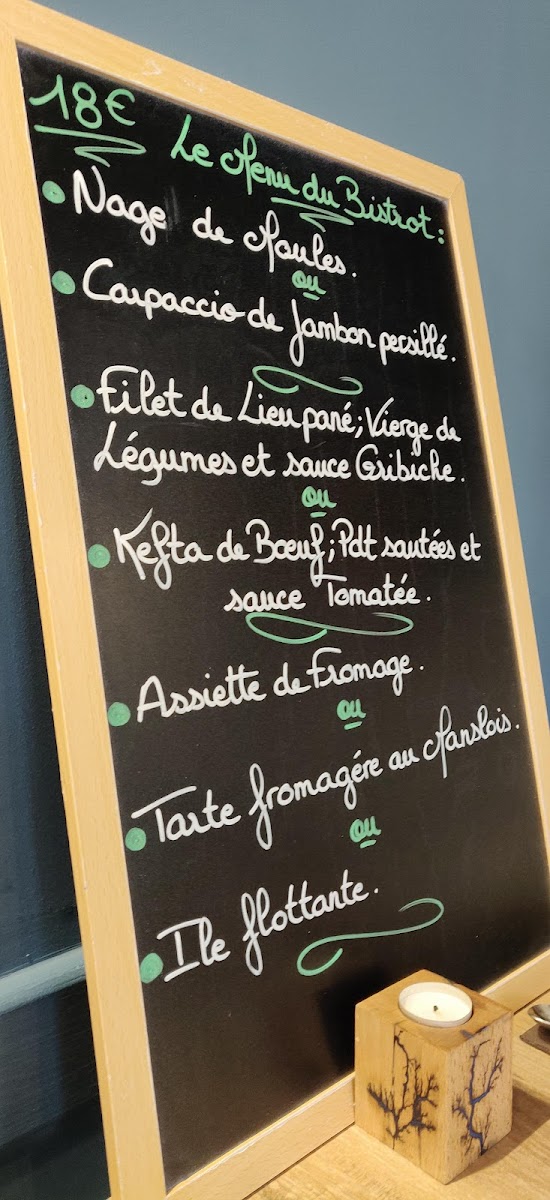 18€ Le Menu du Bistrot :
Nage de Moules.
ou
Carpaccio de Jambon persillé.
Filet de Lieu pané; Vierge de
Légumes et sauce Gribiche.
ou
Kefta de Bœuf; Pdt sautées et
sauce Tomatée.
Assiette de Fromage.
ou
Tarte fromagére au Manslois.
ou
Ile flottante.